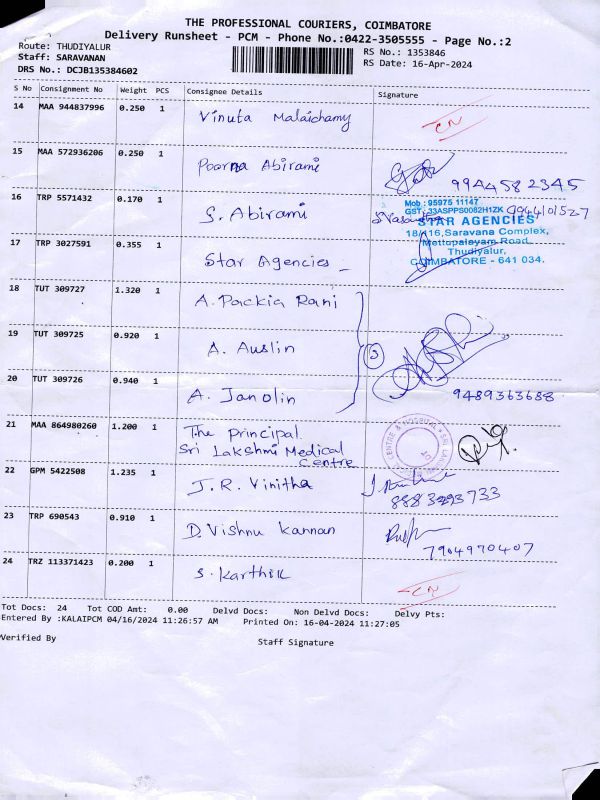 THE PROFESSIONAL COURIERS, COIMBATORE
Delivery Runsheet - PCM - Phone No.:0422-3505555 - Page No.:2
Route: THUDIYALUR
RS No.: 1353846
Staff: SARAVANAN
RS Date: 16-Apr-2024
DRS No.: DCJB135384602
S No Consignment No Weight PCS Consignee Details Signature
14 MAA 944837996 0.250 1 Vinuta Malaichamy CN
15 MAA 572936206 0.250 1 Poorna Abirami 9944582345
16 TRP 5571432 0.170 1 S. Abirami 9944101527
Mob : 95975 11147
GST : 33ASPPS0082H1ZK
STAR AGENCIES
18/116,Saravana Complex,
Mettupalayam Road,
Thudiyalur,
COIMBATORE - 641 034.
17 TRP 3027591 0.355 1 Star Agencies -
18 TUT 309727 1.320 1 A. Packia Rani
19 TUT 309725 0.920 1 A. Auslin 3
20 TUT 309726 0.940 1 A. Janolin 9489363688
21 MAA 864980260 1.200 1 The principal
Sri Lakshmi Medical
Centre
22 GPM 5422508 1.235 1 J.R. Vinitha
23 TRP 690543 0.910 1 D. Vishnu Kannan 7904970407
24 TRZ 113371423 0.200 1 S. Karthik CN
Tot Docs: 24 Tot COD Amt: 0.00 Delvd Docs: Non Delvd Docs: Delvy Pts:
Entered By :KALAIPCM 04/16/2024 11:26:57 AM Printed On: 16-04-2024 11:27:05
Verified By Staff Signature